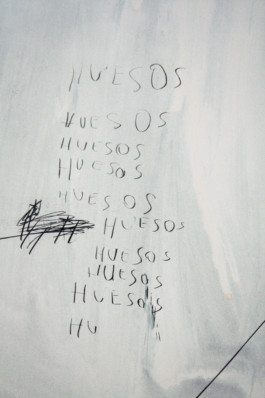 HUESOS
HUESOS
HUESOS
HUESOS
HUESOS
HUESOS
HUESOS
HUESOS
HUESOS
HU